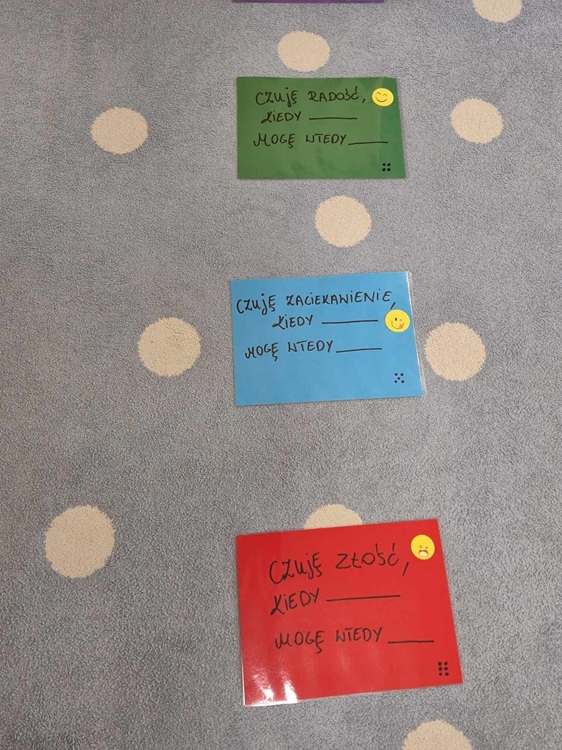 CZUJĘ RADOŚĆ,
KIEDY ______
MOGĘ WTEDY ______
CZUJĘ ZACIEKAWIENIE,
KIEDY ______
MOGĘ WTEDY ______
CZUJĘ ZŁOŚĆ,
KIEDY ______
MOGĘ WTEDY ______